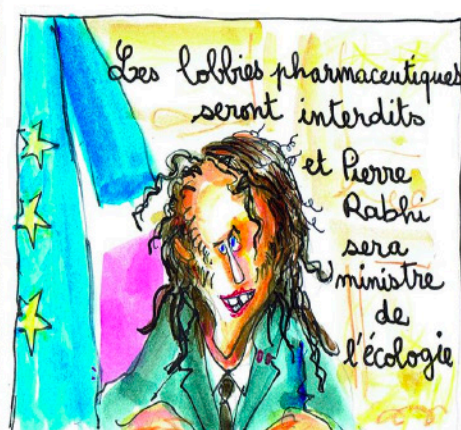 Les lobbies pharmaceutiques
seront interdits
et Pierre
Rabhi
sera
ministre
de
l'écologie